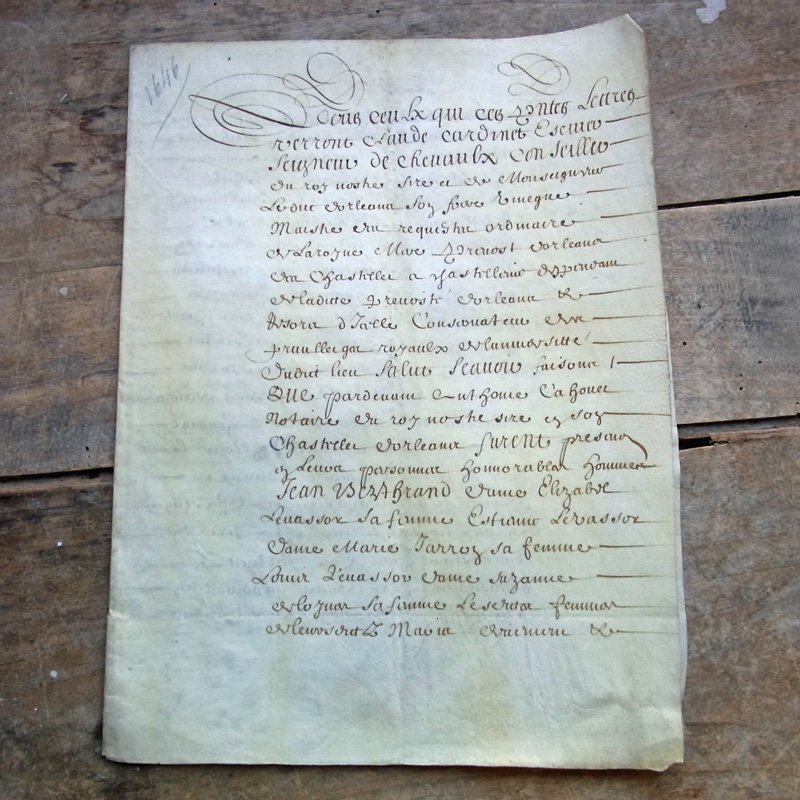 1646
A Tous ceulx qui ces pntes Lettres
verront Claude Cardinet Escuier
Seigneur de Chenaulx Conseiller
du roy nostre sire et de Monseigneur
Le duc dorleans son frere unique
Maistre des requestes ordinaire
de La royne Mere Prevost dorleans
du Chastellet et chastellenie deppendans
de ladicte prevosté dorleans &
Consonateur des
privilleges royaulx de luniversitté
dudict lieu Salut Scavoir faisons
Que pardevant Cahouet
Notaire du roy nostre sire en son
Chastellet dorleans furent presens
en Leurs personnes honnorables hommes
Jean Dame Elizabet
Levassor sa femme Estienne Levassor
dame Marie Jarroy sa femme
Louis Levassor dame Suzanne
de loynes sa femme Lesdites femmes
de leursdictz Maris &